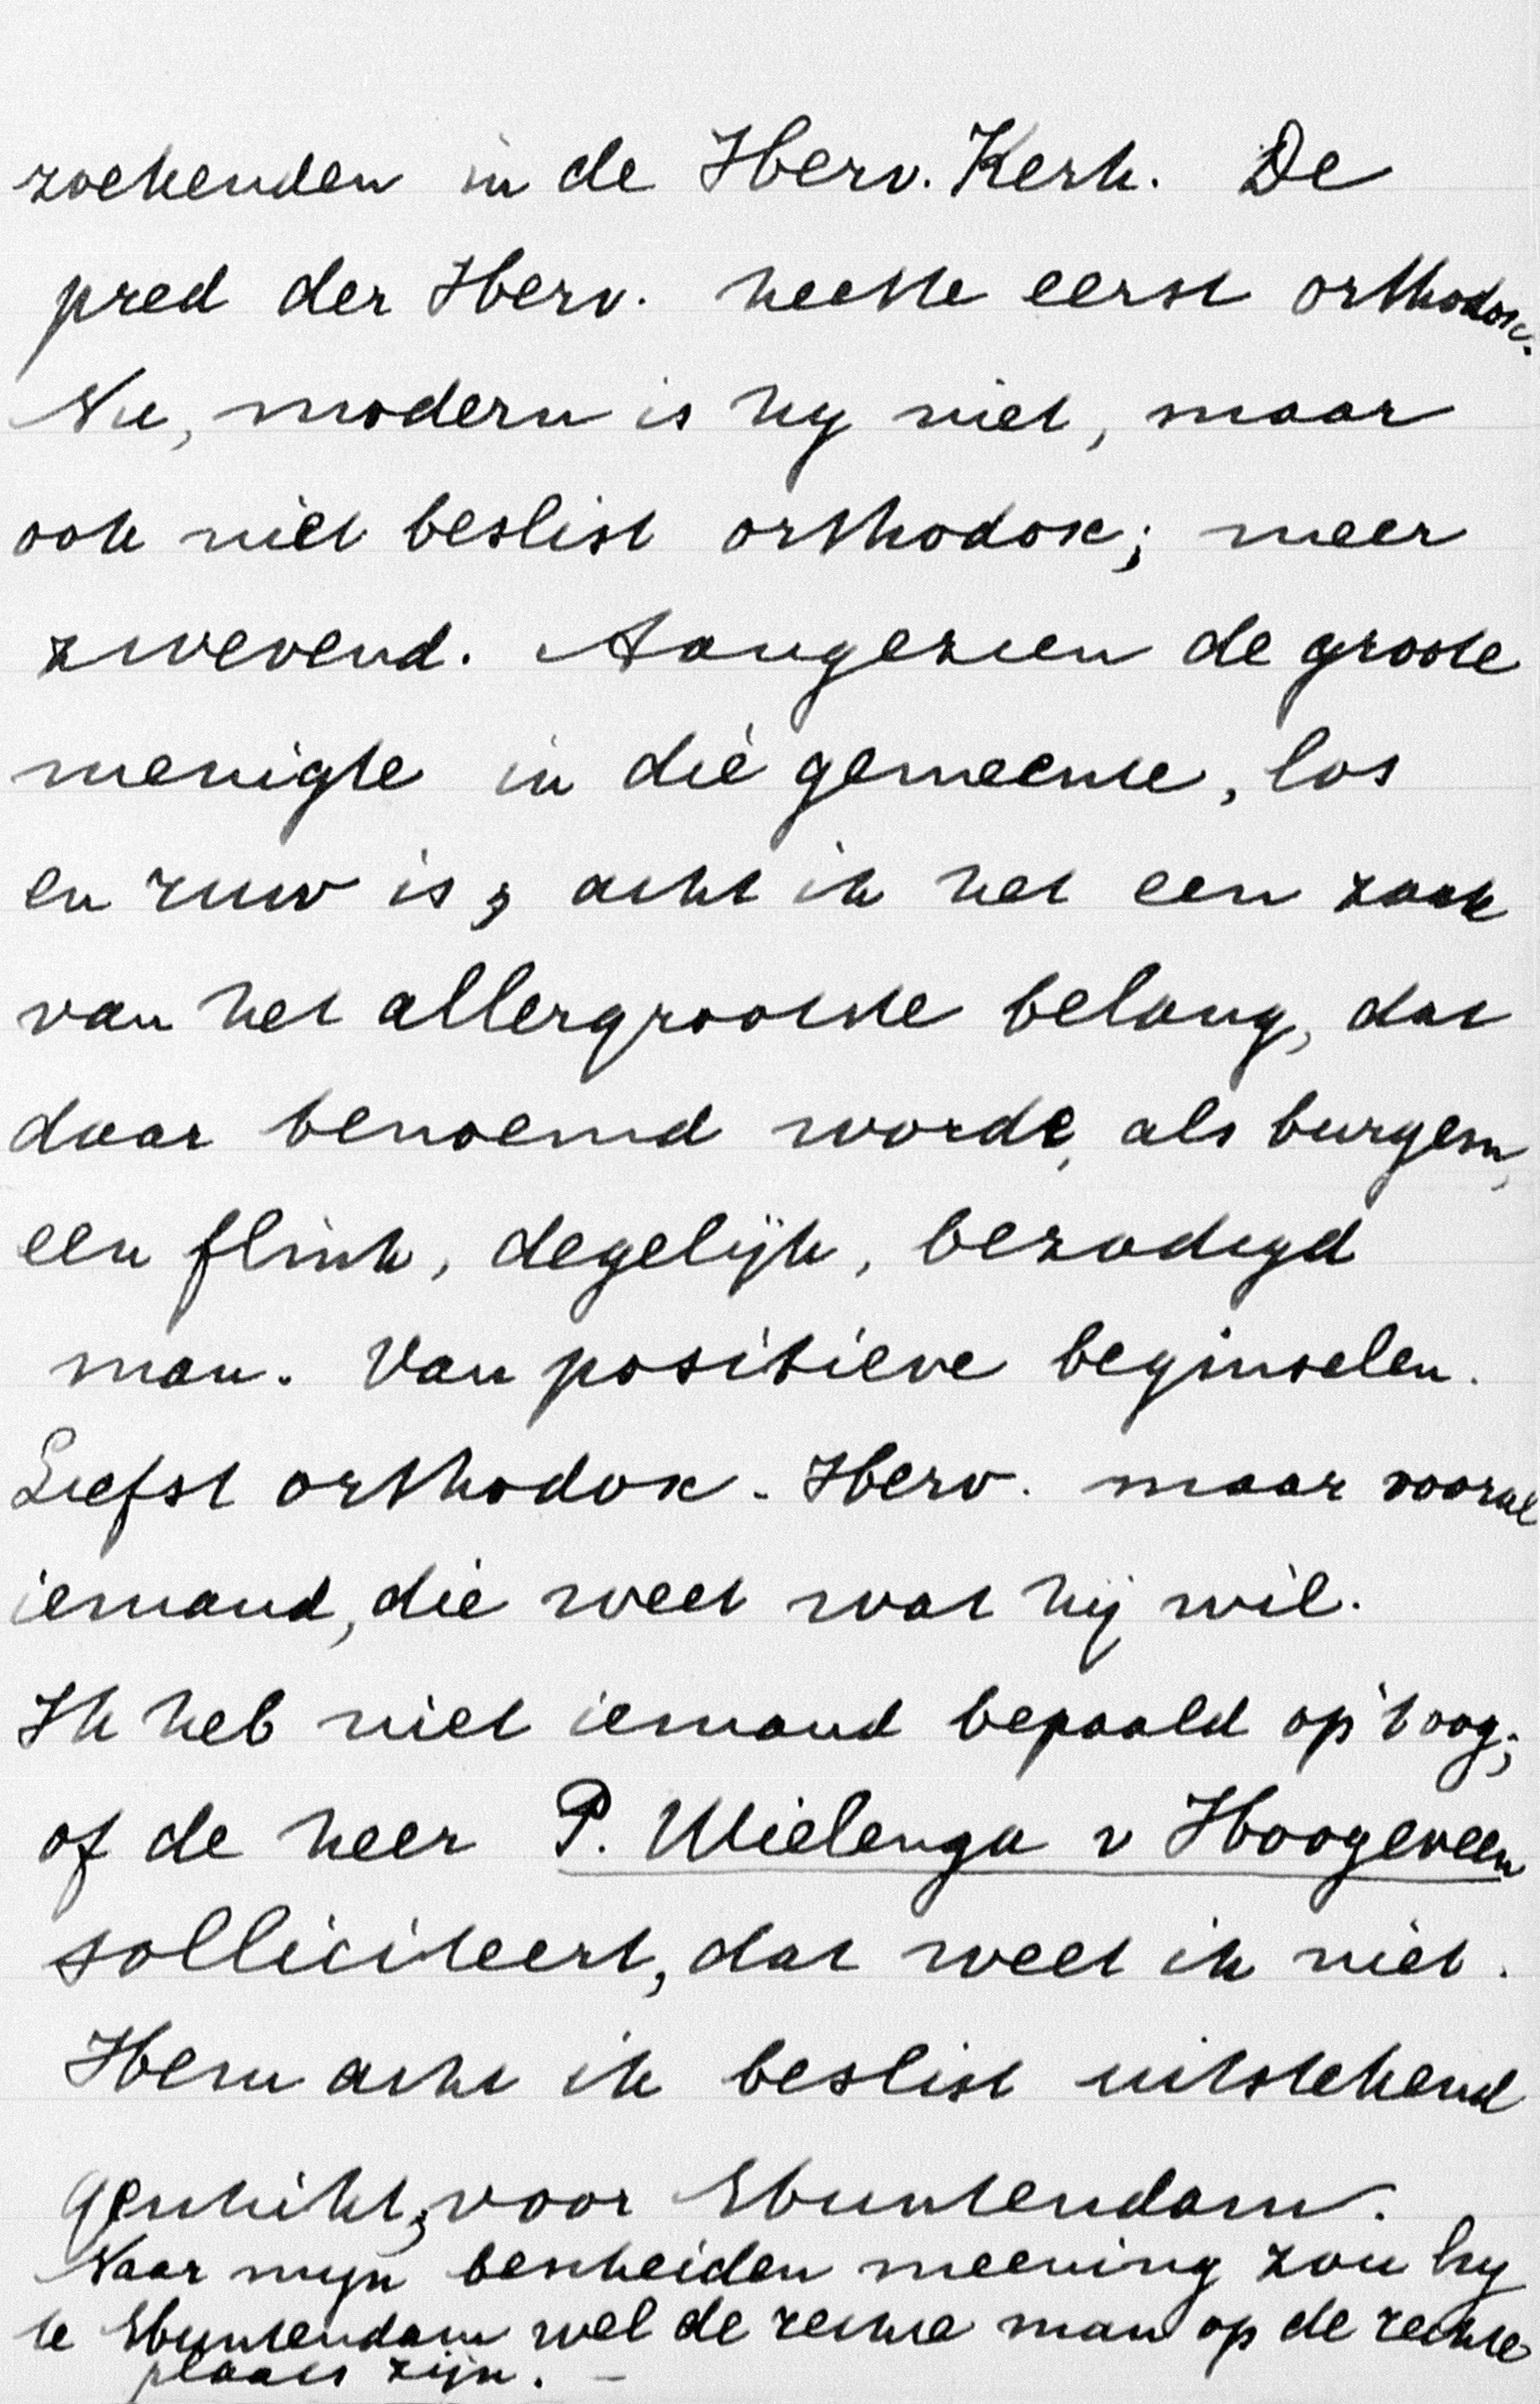 zoekenden in de Herv. Kerk. De
pred der Herv. heette eerst orthodox.
Nu, modern is hy niet, maar
ook niet beslist orthodox; meer
zwevend. Aangezien de groote
menigte in die gemeente, los
en ruw is, acht ik het een zaak
van het allergrootste belang, dat
daar benoemd worde, als burgem,
een flink, degelijk, bezadigd
man. Van positieve beginselen.
Liefst orthodox-Herv. maar vooral
iemand, die weet wat hij wil.
Ik heb niet iemand bepaald op 't oog;
of de heer P. Wielenga v Hoogeveen
solliciteert, dat weet ik niet.
Hem acht ik beslist uitstekend
geschikt, voor Stuntendam.
Naar myn bescheiden meening zou hy
te Stuntendam wel de rechte man op de rechte
plaats zijn. -